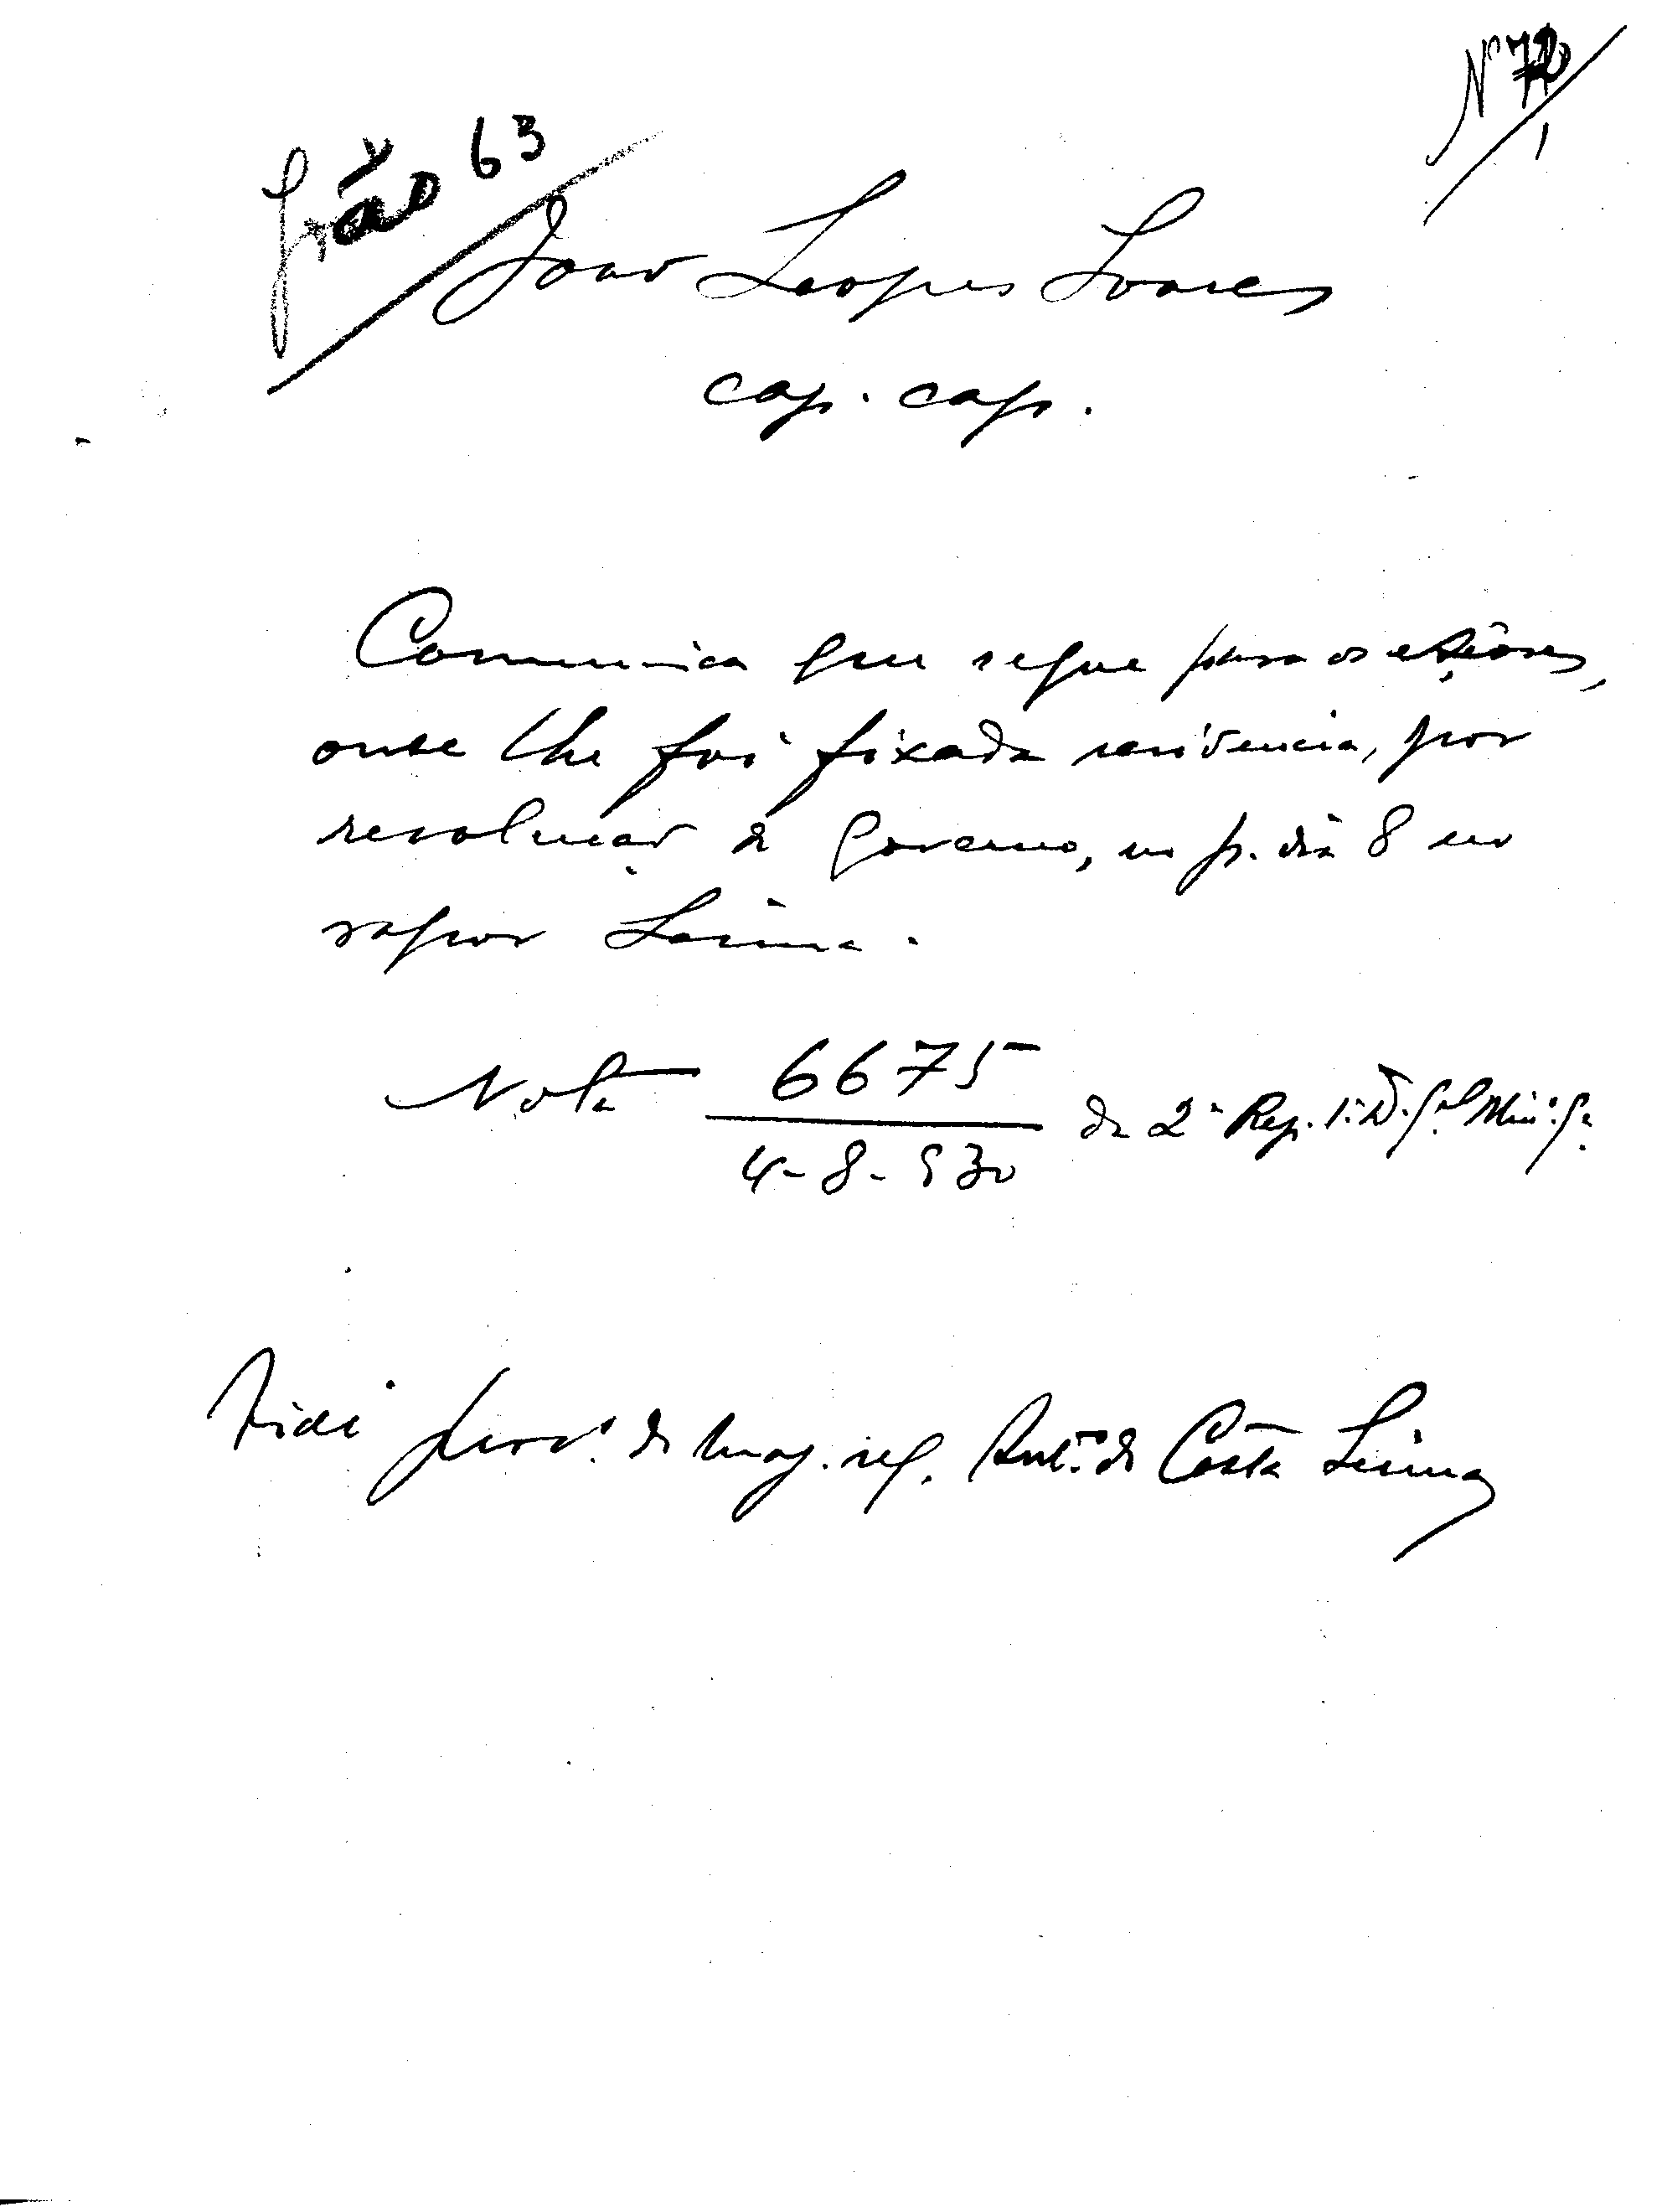 Nº 72
1
João 63
João Lopes Soares
cap. cap.
Comunica que segue para os Açôres,
onde lhe foi fixada residencia, por
resolução do Governo, no p. dia 8 no
vapor Lima.
Nota 6675 da 2ª Rep. 1ª D. Gal Minº Gª
4-8-930
Vidé procº do maj. ref. Antº da Costa Lima